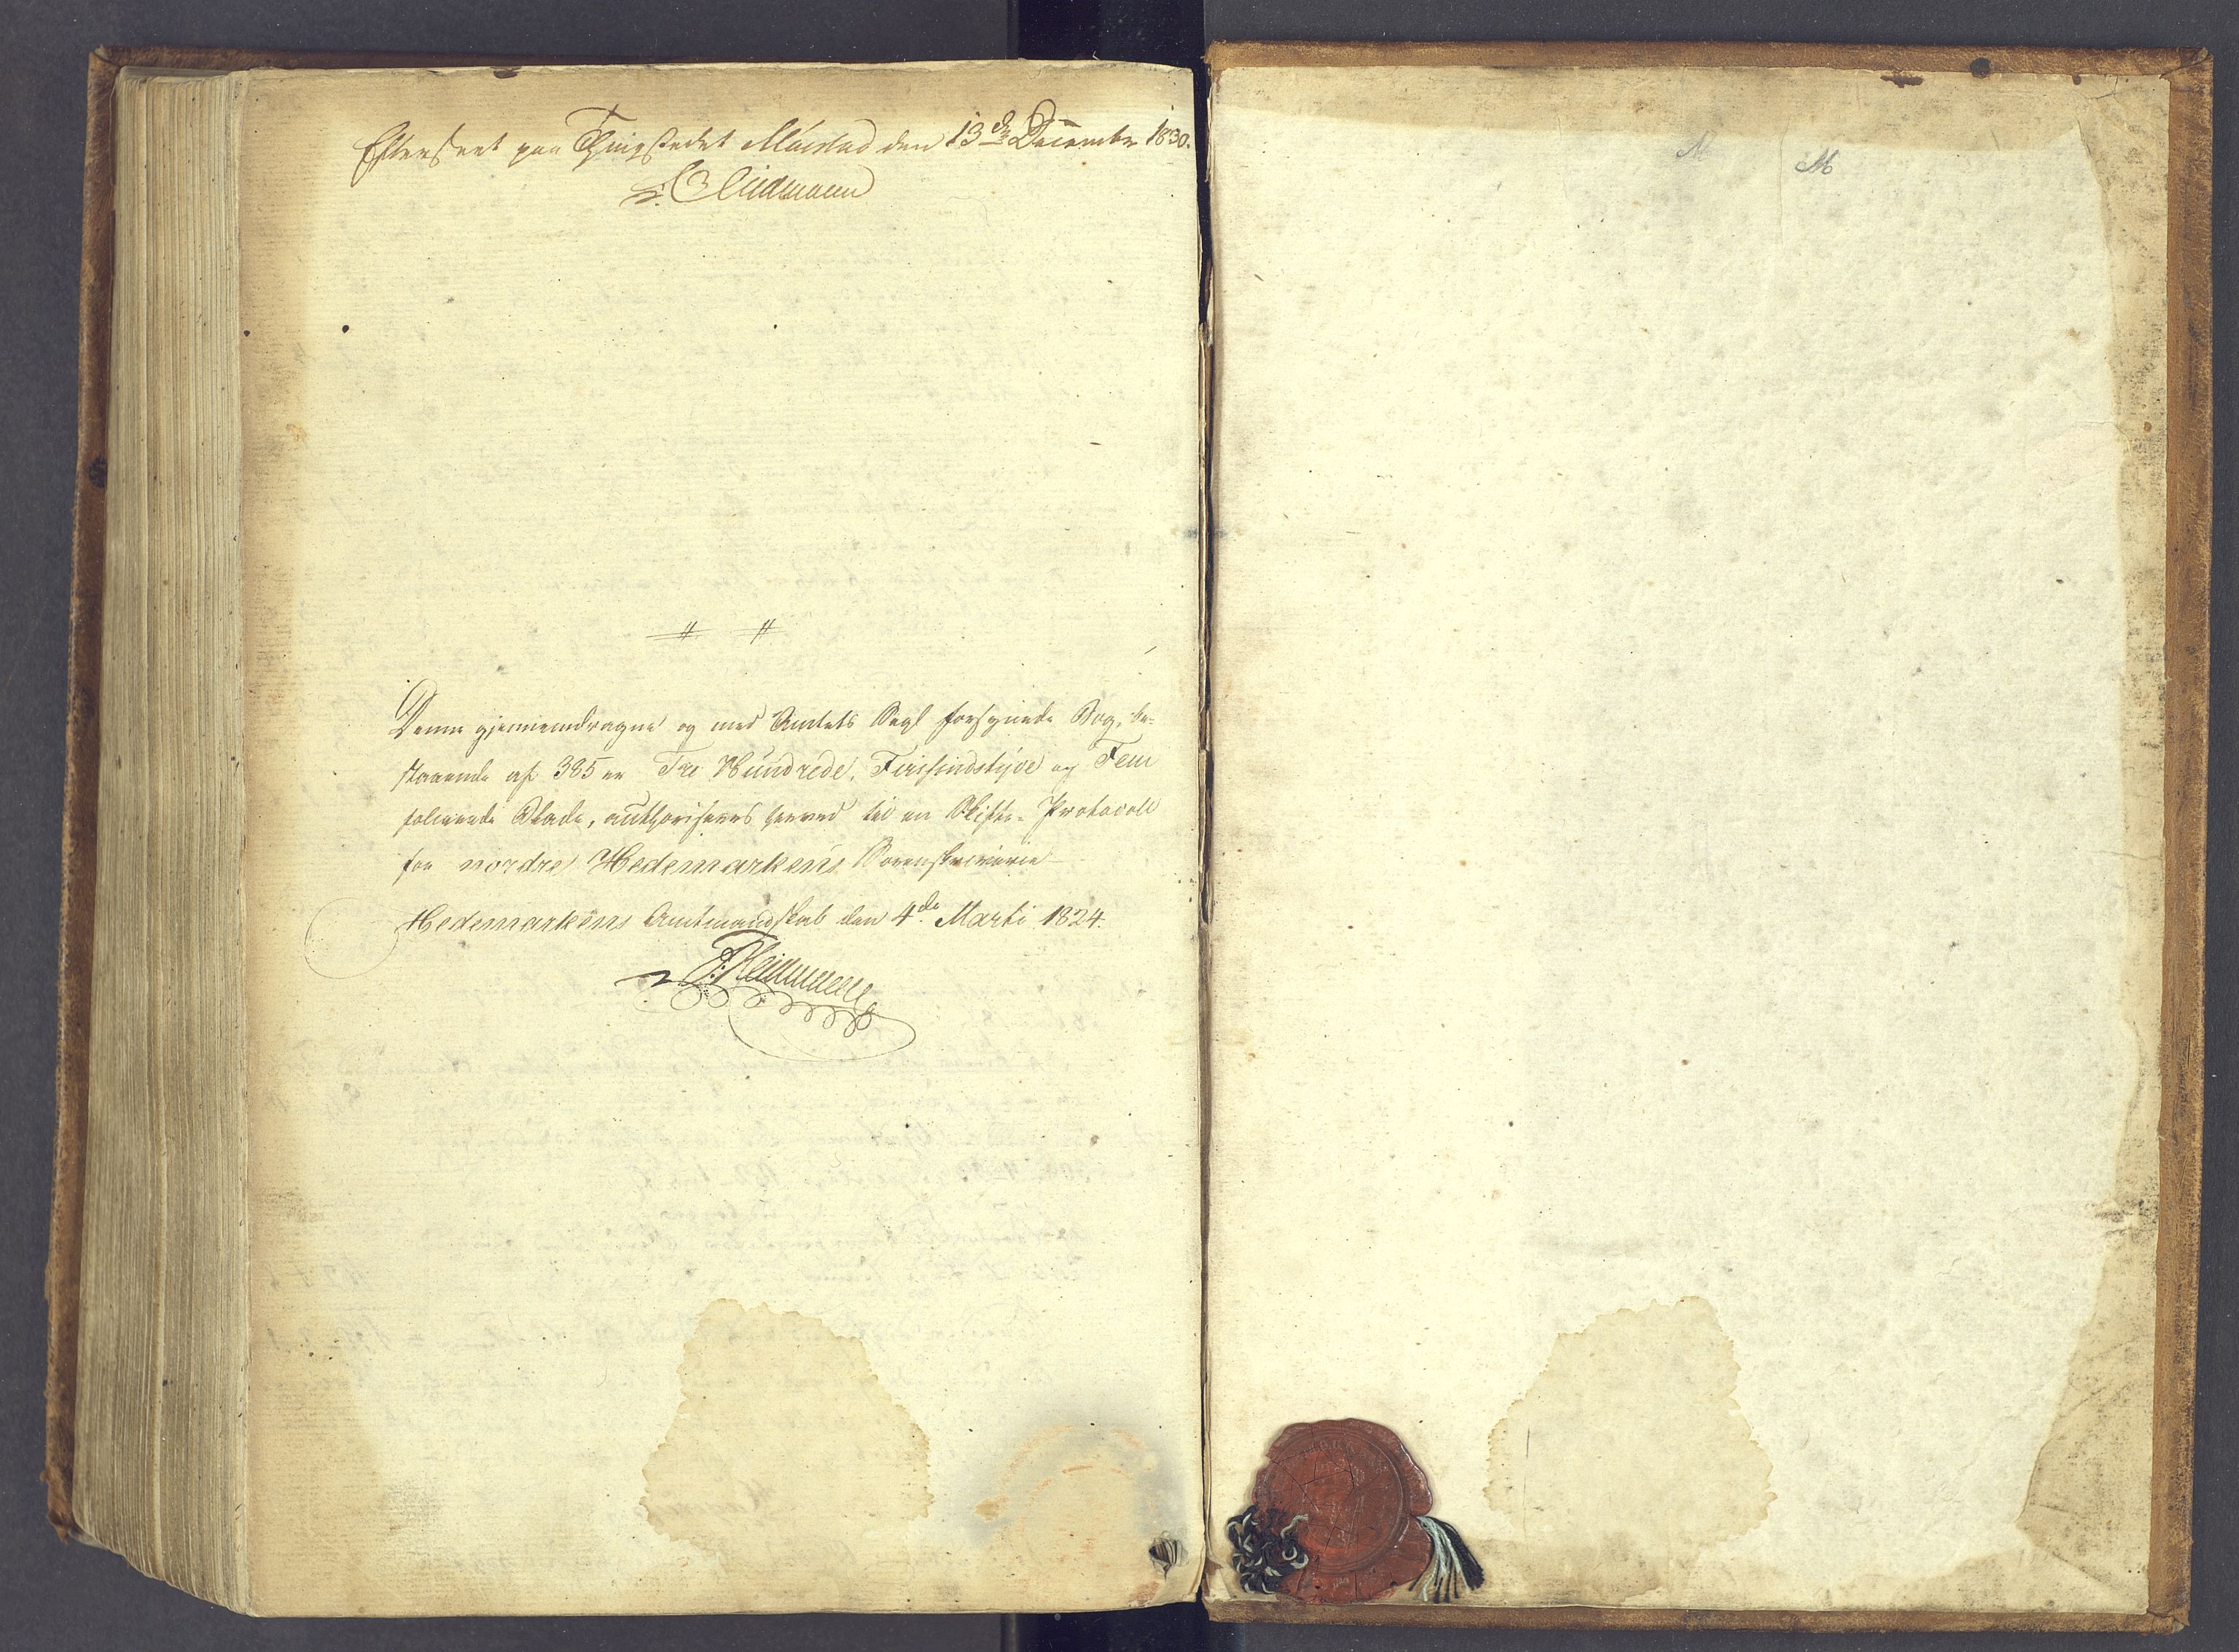 Efterseet paa Thingstedet den 13de December 1830.
Denne gjennemdragne og med Amtets Segl forsynede Bog, be-
staaende af 385 er Tre Hundrede, Firesindstyve og Fem
folierede Blade, authoriseres herved til en Skifte-Protocoll
for nordre Hedemarkens Sorenskriverie
Hedemarkens Amtmandskab den 4de Marti 1824.
M M